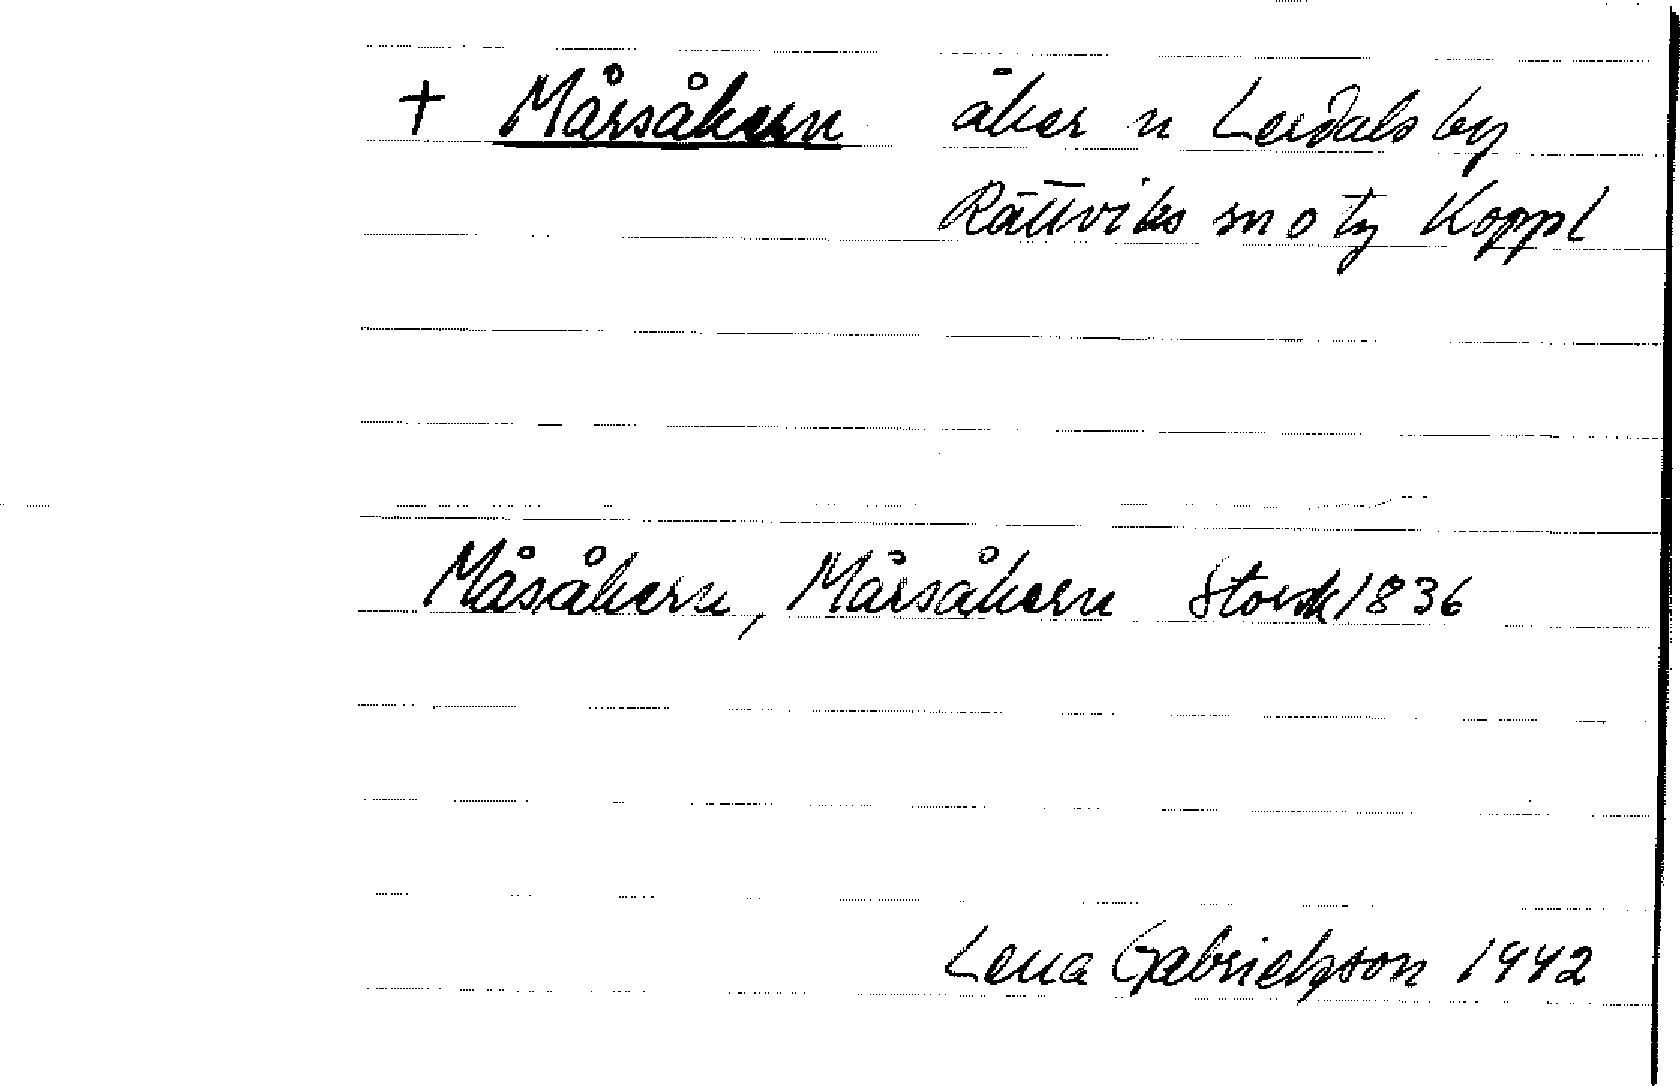 + Mårsåkern åker n Lerdals by
Rättviks sn o tg Koppl
Måsåkern, Mårsåkern Storsk 1836
Lena Gabrielsson 1942